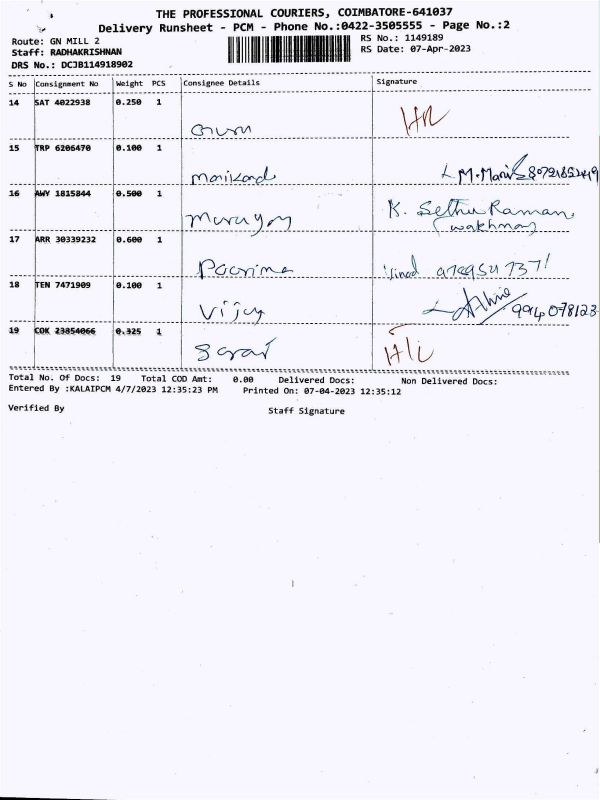 THE PROFESSIONAL COURIERS, COIMBATORE-641037
Delivery Runsheet - PCM - Phone No.:0422-3505555 - Page No.:2
Route: GN MILL 2
Staff: RADHAKRISHNAN
DRS No.: DCJB114918902
RS No.: 1149189
RS Date: 07-Apr-2023
S No Consignment No Weight PCS Consignee Details Signature
14 SAT 4022938 0.250 1
Guru
15 TRP 6206470 0.100 1
M.Mani
16 AWY 1815844 0.500 1 K. Sethu Raman
Murugan (watchman)
17 ARR 30339232 0.600 1
Poorima
18 TEN 7471909 0.100 1
Vijay
19 COK 23854066 0.325 1
Total No. Of Docs: 19 Total COD Amt: 0.00 Delivered Docs: Non Delivered Docs:
Entered By :KALAIPCM 4/7/2023 12:35:23 PM Printed On: 07-04-2023 12:35:12
Verified By Staff Signature